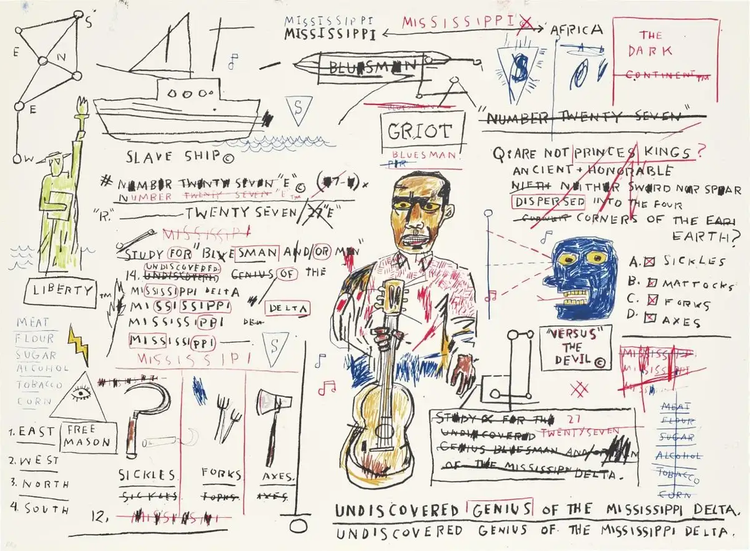 S
E
N
E
W
SLAVE SHIP©
S
MISSISSIPPI
MISSISSIPPI
MISSISSIPPI
AFRICA
BLUESMAN
S
THE
DARK
CONTINENT™
"NUMBER TWENTY SEVEN"
GRIOT
BLUESMAN
# NUMBER TWENTY SEVEN "E" ©
NUMBER TWENTY SEVEN "E"
"R." TWENTY SEVEN/27"E"
MISSISSIPI
STUDY FOR "BLUESMAN AND/OR MAN"
UNDISCOVERED
14. UNDISCOVERED GENIUS OF THE
MISSISSIPPI DELTA
MISSISSIPPI DELTA
MISSISSIPPI DEL
MISSISSIPPI
MISSISSIPI
S
LIBERTY™
MEAT
FLOUR
SUGAR
ALCOHOL
TOBACCO
CORN
FREE
MASON
1. EAST
2. WEST
3. NORTH
4. SOUTH
SICKLES
SICKLES
FORKS
FORKS
AXES.
AXES
12. MISSISSIPI
Q: ARE NOT PRINCES KINGS?
ANCIENT + HONORABLE
NIETH NEITHER SWORD NOR SPEAR
DISPERSED INTO THE FOUR
CORNERS OF THE EARTH
EARTH?
A. SICKLES
B. MATTOCKS
C. FORKS
D. AXES
"VERSUS"
THE
DEVIL©
MISSISSIPPI
MISSISSIPPI
MEAT
FLOUR
SUGAR
ALCOHOL
TOBACCO
CORN
STUDY FOR THE 27
UNDISCOVERED TWENTYSEVEN
GENIUS BLUESMAN AND/OR
OF THE MISSISSIPPI DELTA.
UNDISCOVERED GENIUS OF THE MISSISSIPPI DELTA.
UNDISCOVERED GENIUS OF THE MISSISSIPPI DELTA.